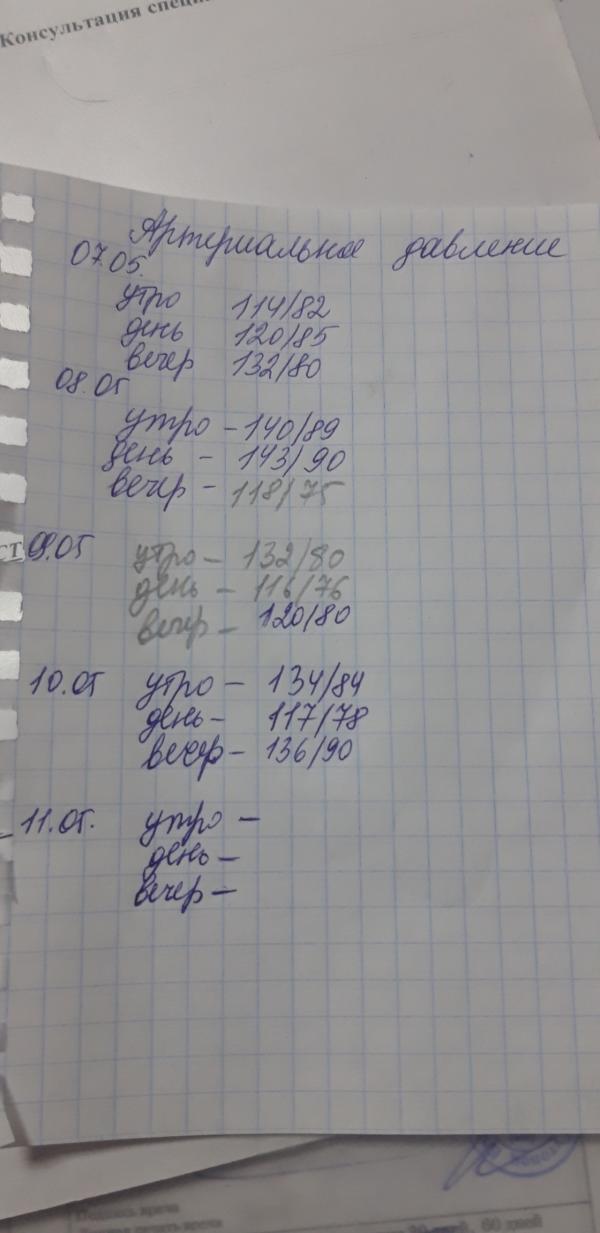 Консультация
Артериальное давление
07.05.
утро 114/82
день 120/85
вечер 132/80
08.05
утро - 140/89
день - 143/90
вечер - 118/75
СТ
09.05 утро - 132/80
день - 116/76
вечер - 120/80
10.05 утро - 134/84
день - 117/78
вечер - 136/90
11.05. утро -
день -
вечер -
Подпись врача
60 дней